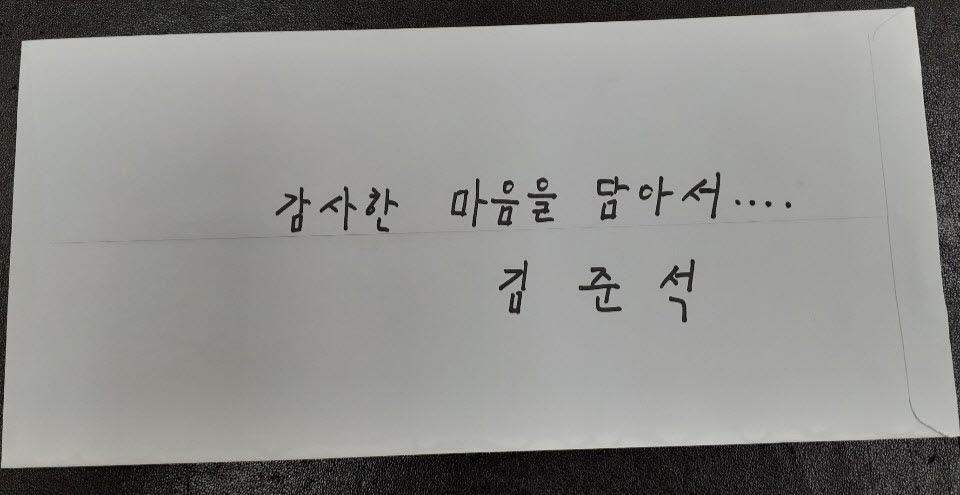 감사한 마음을 담아서....
김 준 석